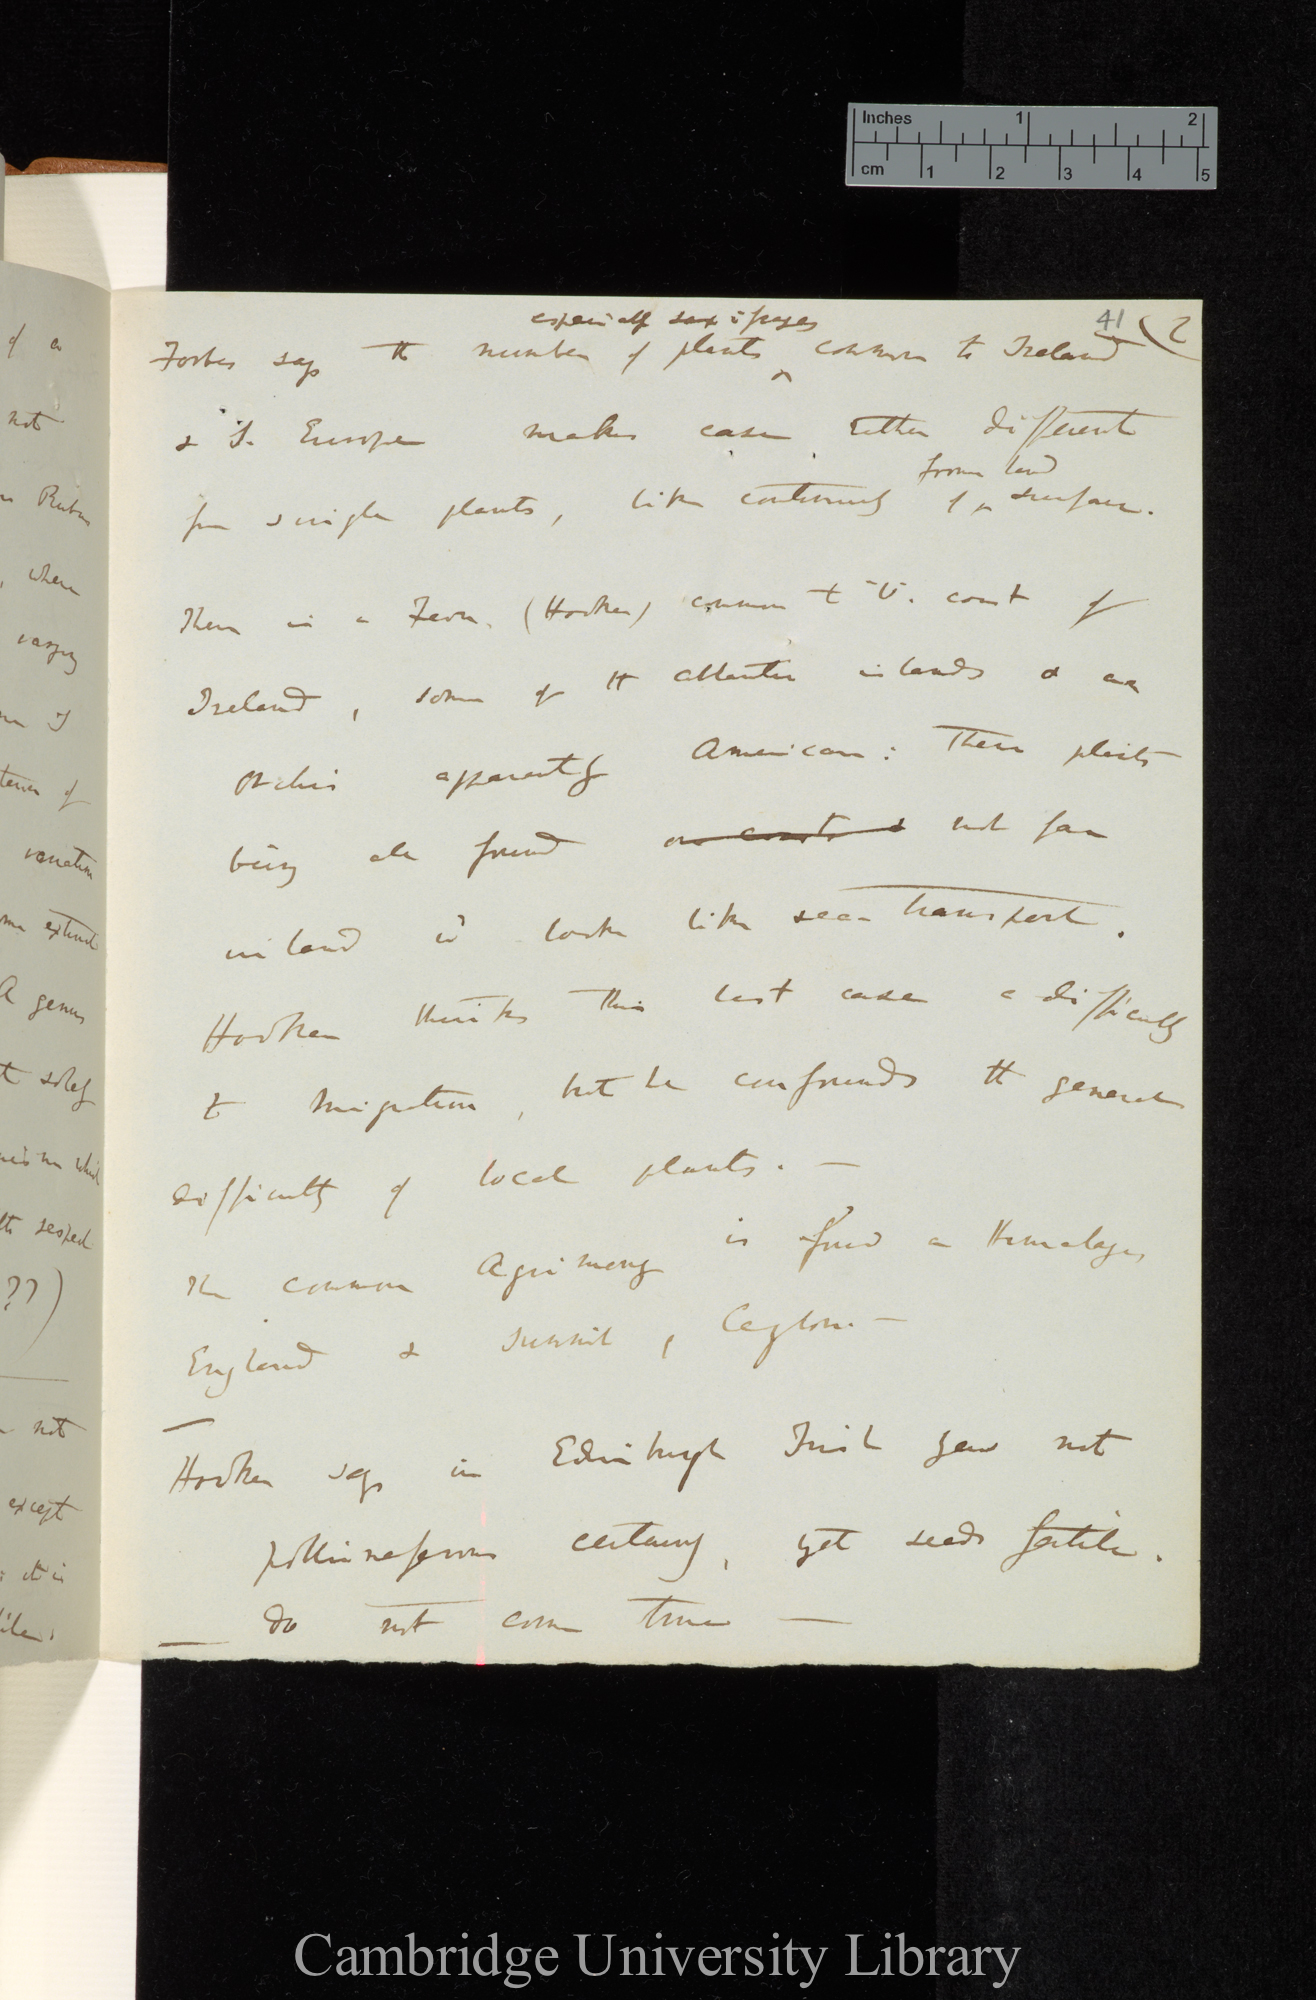 Inches 1 2
cm 1 2 3 4 5
41 (2
especially saxifrages
Forbes says the number of plants ^ common to Ireland
& S. Europe makes case rather different
from land
from single plants, like continuity of ^ surface.
There is a Fern. (Hooker) common to W. coast of
Ireland, some of the Atlantic islands & an
orchis apparently American: These plants
being all found on coasts & not far
inland it looks like sea-transport.
Hooker thinks this last case a difficulty
to migration, but he confounds the general
difficulty of local plants. —
The common Agrimony is found on Himalaya,
England & summit, Ceylon. —
Hooker says in Edinburgh Irish yew not
polliniferous certainly, yet seeds fertile.
do not come true —
of a
not
Rubus
, where
varying
I
of
variation
extent
A genus
solely
which
respect
??)
not
except
Cambridge University Library